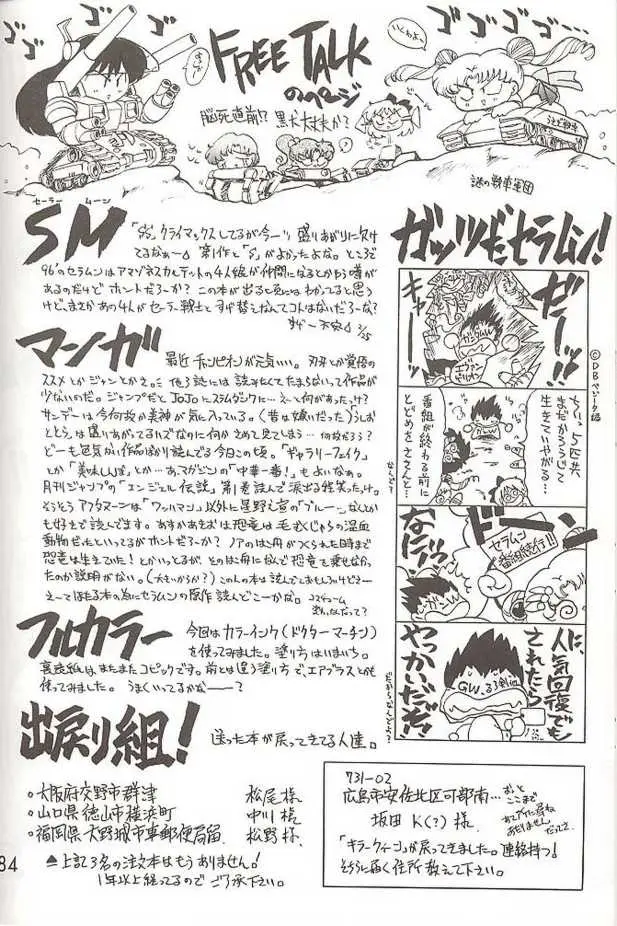 ゴゴゴ
ゴゴゴ…
いくわよっ
FREE TALK
のページ
脳死直前!? 黒犬大丈夫か?
謎の戦車軍団
セーラー ムーン
SM
「S'S」クライマックスしてるが今一ツ盛りあがりに欠け
てるなぁー 第1作と「S」がよかったよな。ところで
96'のセラムンはアマゾネスカルテットの4人娘が仲間になるとかもう噂が
あるのだけど ホントだろーか? この本が出る頃にはわかってると思う
けど、まさかあの4人がセーラー戦士とすげ替えなんてコトはないだろーな?
2/25
マンガ
最近チャンピオンが元気いい。刃牙とか覚悟の
ススメとかジャンとかえと。他3誌には読みたくてたまらないって作品が
少ないのだ。ジャンプだとJoJoにスラムダンクに…え〜と何があったっけ?
サンデーは今何故か美神が気に入っている。(昔は嫌いだった)うしお
ととらは盛りあがってるハズなのに何かさめて見てしまう…何故だろう?
どーも色気がい作品ばかり読んでる今日この頃。「ギャラリーフェイク」
とか「美味しんぼ」とか…あマガジンの「中華一番!」もよいなぁ。
月刊ジャンプの「エンジェル伝説」第1巻読んで涙出る程笑ったっけ。
そうそうアフタヌーンは「ワッハマン」以外に星野之宣の「ブルーなんとか
も好きで読んでます。あすかあきおは恐竜は毛むくじゃらの温血
動物だったといってるがホントだろーか? ノアのはこ舟がつくられた時まで
恐竜は生きていた!とかいっとるが、そのはこ舟になんで恐竜を乗せなかっ
たのか説明がない。(大きいからか?) この人の本は読んでておもしろいけどさー
え〜てほたる本の為にセラムンの原作読んどこーかな。
フルカラー
今回はカラーインク(ドクターマーチン)
を使ってみました。塗り方はいまいち。
裏表紙はまたまたコピックです。前とは違う塗り方で、エアブラスとかも
使ってみました。うまくいってるかな――?
出戻り組!
送った本が戻ってきてる人達。
○大阪府交野市群津 松尾様
○山口県徳山市横浜町 中川様
○福岡県大野城市東郵便局留 松野様
▲上記3名の注文本はもうありません!
1年以上経ってるのでご了承下さい。
84
ガッツだセラムン!
©DBベジータ編
だーッ!!
キャー
ガンダムW
エヴァンゲリオン
ちいっ 5匹共
まだかろうじて
生きていやがる…
番組が終わる前に
とどめをささんと…
なんで?
ドーン
セラムン
番組続行!!
なにィッ
人気回復でも
されたら
やっかいだぜ!
GW、るろ剣他
だからなんでよ?
731-02
広島市安佐北区可部南…
おっと
ここまで
坂田 K(?) 様
「キラークィーン」が戻ってきました。連絡待つ!
そちらに届く住所教えて下さい。